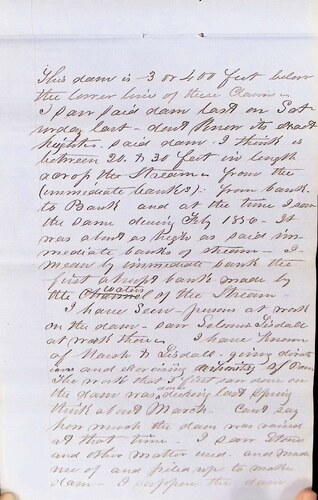 This dam is 3 or 400 feet below
the lower line of these Claims
I saw said dam last on Sat-
urday last - dont know its exact
heighth. said dam I think is
between 20 & 30 feet in length
across the Stream - from the
(immediate banks): from bank
to Bank and at the time I saw
the same during Feby 1856 - It
was about as high as said im-
mediate banks of stream - I
mean by immediate bank the
first abrupt bank made by
the waters of the Stream -
I have Seen persons at work
on the dam - saw Tisdall
at work there - I have known
of & Tisdall - giving direct
ions and exercising of Dam
The work that I first saw done on
the dam was during last Spring
think about March. Cant say
how much the dam was raised
at that time. I saw Stones
and other matter used and made
use of and piled up to make
dam - I suppose the dam